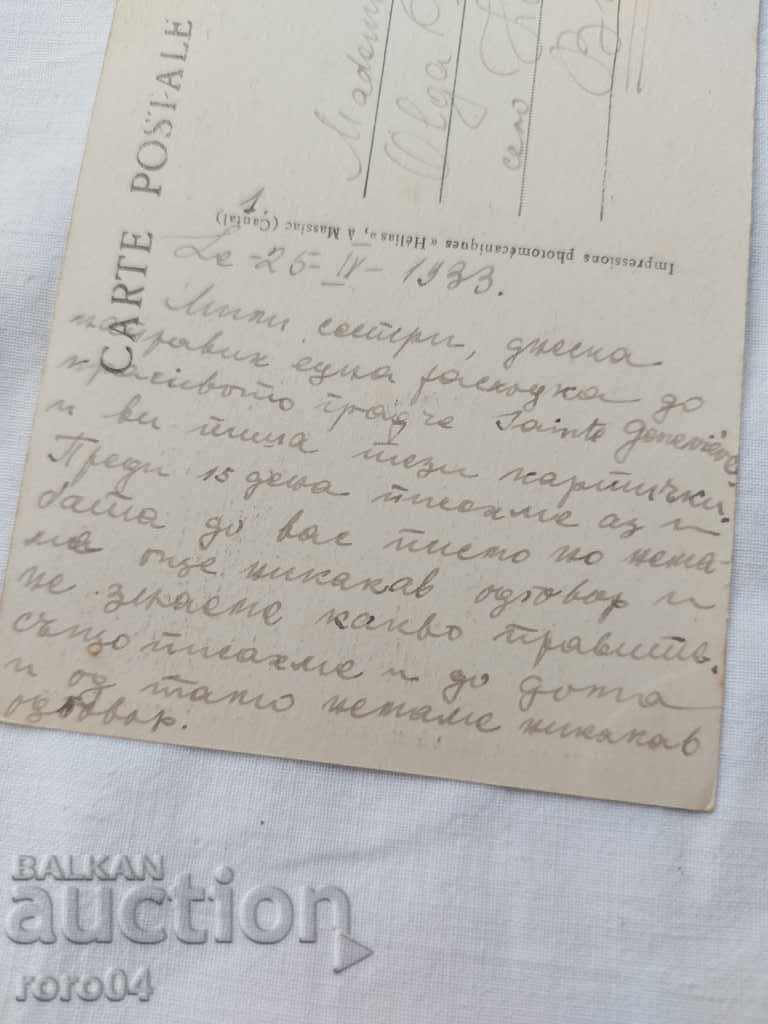 CARTE POSTALE
Madem
Olga
село
Impressions photomécaniques « Hélias », A Massiac (Cantal)
1
Le -25-IV- 1933.
Мили сестри, днеска
направих една расходка до
красивото градче Sainte Geneviève
и ви пиша тези картички.
Преди 15 дена писахме аз и
бата до вас писмо но нема-
ме още никакав одговор и
не знаеме какво правите.
също писахме и до дома
и од тамо немаме никакав
одговор.
BALKAN
auction
roro04